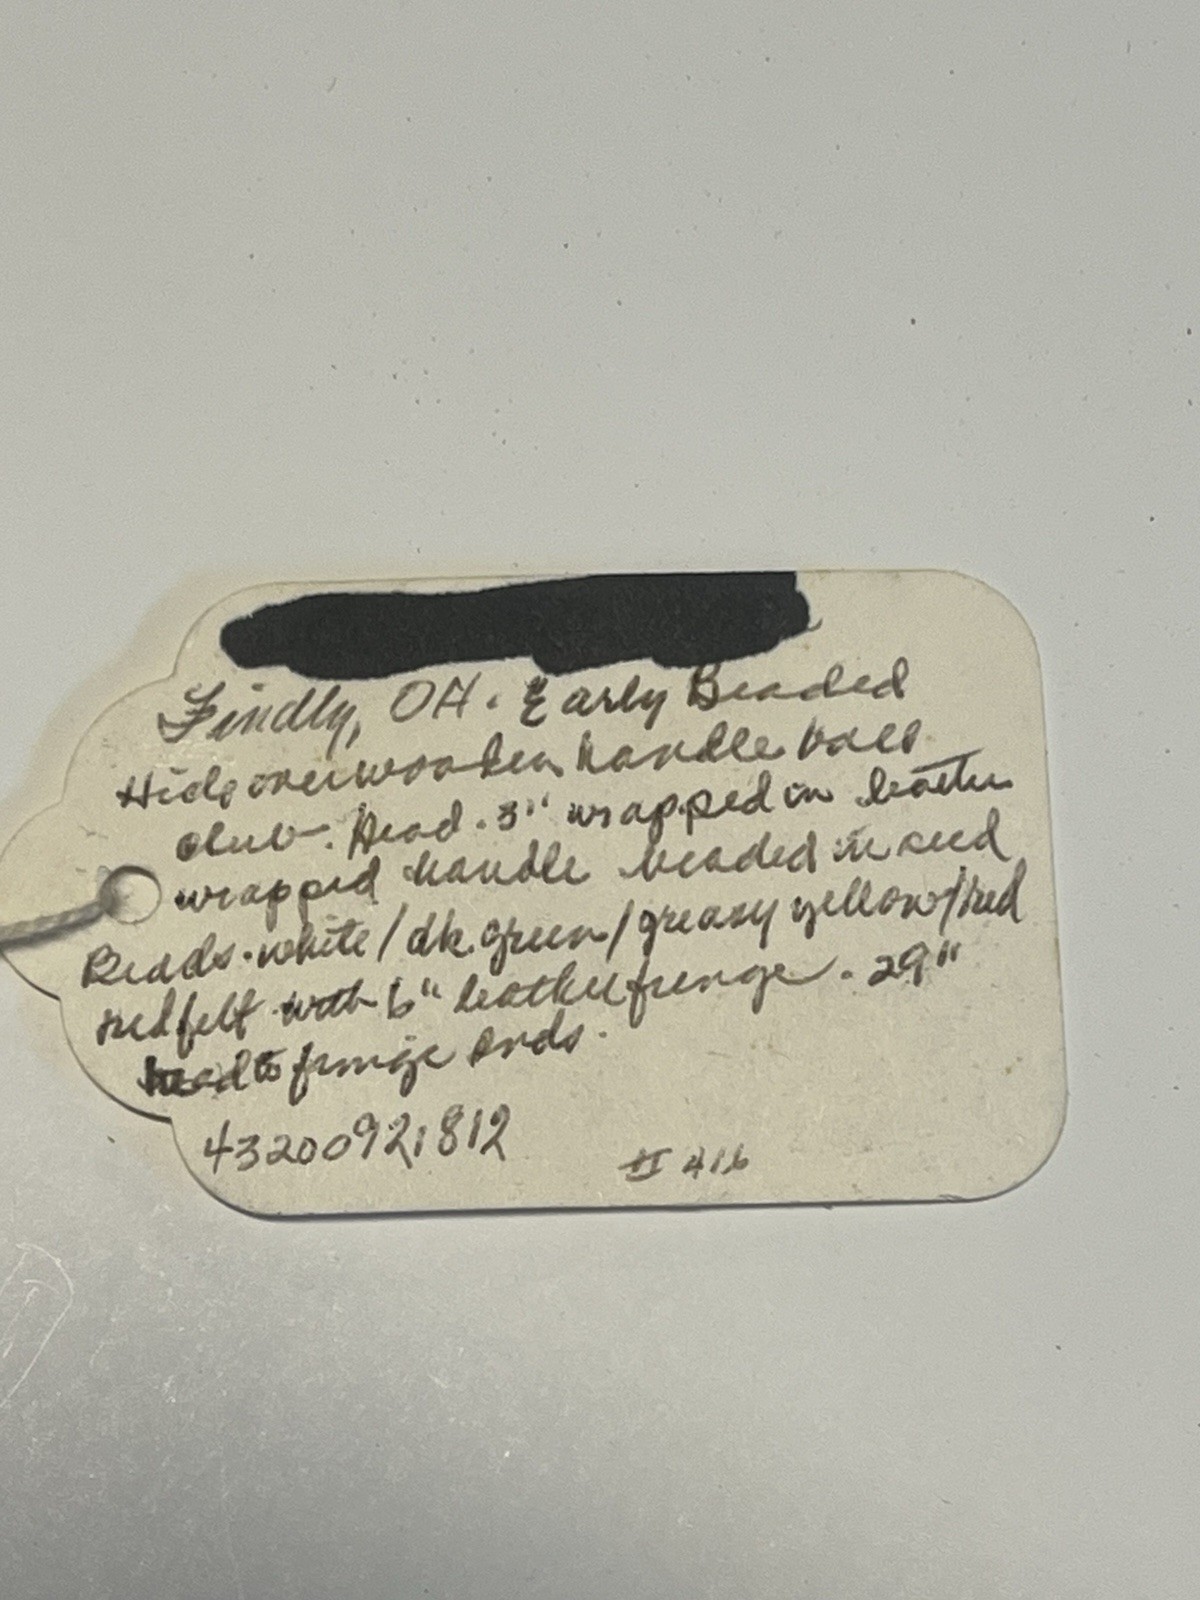 Findly, OH. Early Beaded
Hide over wooden handle ball
club. Head. 3" wrapped in leather
wrapped handle beaded in seed
Beads. white / dk. green / greasy yellow / red
red felt with 6" leather fringe. 29"
head to fringe ends.
43200921812
# 416